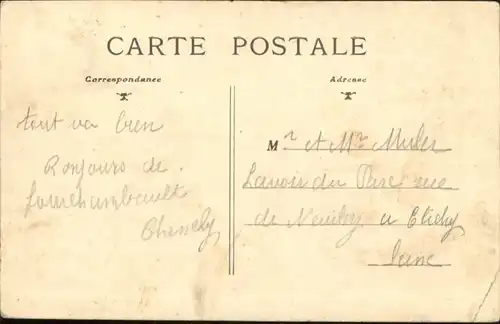 CARTE POSTALE
Correspondance
Adresse
tout va bien
Bonjours de
Fourchambault
M r et Mme Muler
Lavoir du Parc, rue
de Neuilly a Clichy
Seine